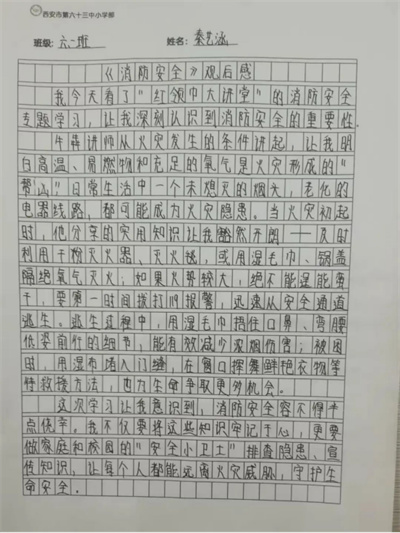 西安市第六十三中小学部
班级:六一班 姓名:秦艺涵
《消防安全》观后感
我今天看了"红领巾大讲堂"的消防安全
专题学习,让我深刻认识到消防安全的重要性.
牛犇讲师从火灾发生的条件讲起,让我明
白高温、易燃物和充足的氧气是火灾形成的"
帮山"日常生活中一个未熄灭的烟头,老化的
电器线路,都可能成为火灾隐患。当火灾初起
时,他分享的实用知识让我豁然开朗——及时
利用干粉灭火器、灭火毯,或用湿毛巾、锅盖
隔绝氧气灭火;如果火势较大,绝不能逞能蛮
干,要第一时间拨打119报警,迅速从安全通道
逃生。逃生过程中,用湿毛巾捂住口鼻、弯腰
低姿前行的细节,能有效减少浓烟伤害;被困
时,用湿布堵入门缝,在窗口挥舞鲜艳衣物等
待救援方法,也为生命争取更多机会。
这次学习让我意识到,消防安全容不得半
点侥幸。我不仅要将这些知识牢记于心,更要
做家庭和校园的"安全小卫士"排查隐患、宣
传知识,让每个人都能远离火灾威胁,守护生
命安全.